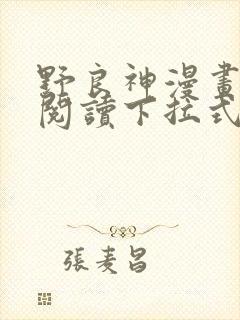 野良神漫畫
閱讀下拉式
張麦昌